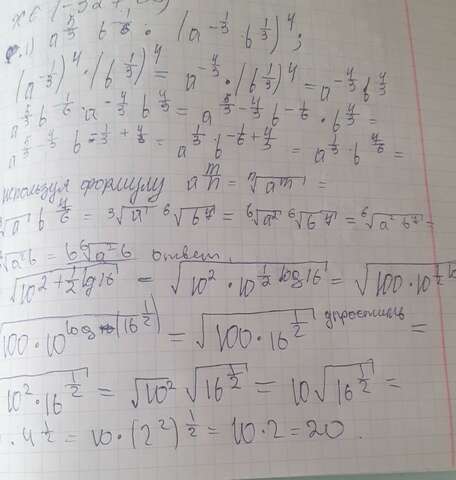 1) a^{5/3} b^{-1/6} : (a^{-1/3} · b^{1/3})^4;
(a^{-1/3})^4 · (b^{1/3})^4 = a^{-4/3} · (b^{1/3})^4 = a^{-4/3} b^{4/3}
a^{5/3} b^{-1/6} · a^{-4/3} b^{4/3} = a^{5/3-4/3} b^{-1/6} · b^{4/3} =
a^{5/3-4/3} b^{-1/3+4/3} = a^{1/3} · b^{-1/6+4/3} = a^{1/3} · b^{7/6} =
используя формулу a^{m/n} = ⁿ√a^m =
³√a b^{7/6} = ³√a ⁶√b^7 = ⁶√a^2 ⁶√b^7 = ⁶√a^2 b^7 =
⁶√a^2 b b = b ⁶√a^2 b ответ.
√10^{2+1/2 lg16} = √10^2 · 10^{1/2 log16} = √100 · 10^{1/2
100 · 10^{log(16^{1/2})} = √100 · 16^{1/2} упростить =
10^2 · 16^{1/2} = √10^2 √16^{1/2} = 10√16^{1/2} =
· 4^{1/2} = 10 · (2^2)^{1/2} = 10 · 2 = 20.